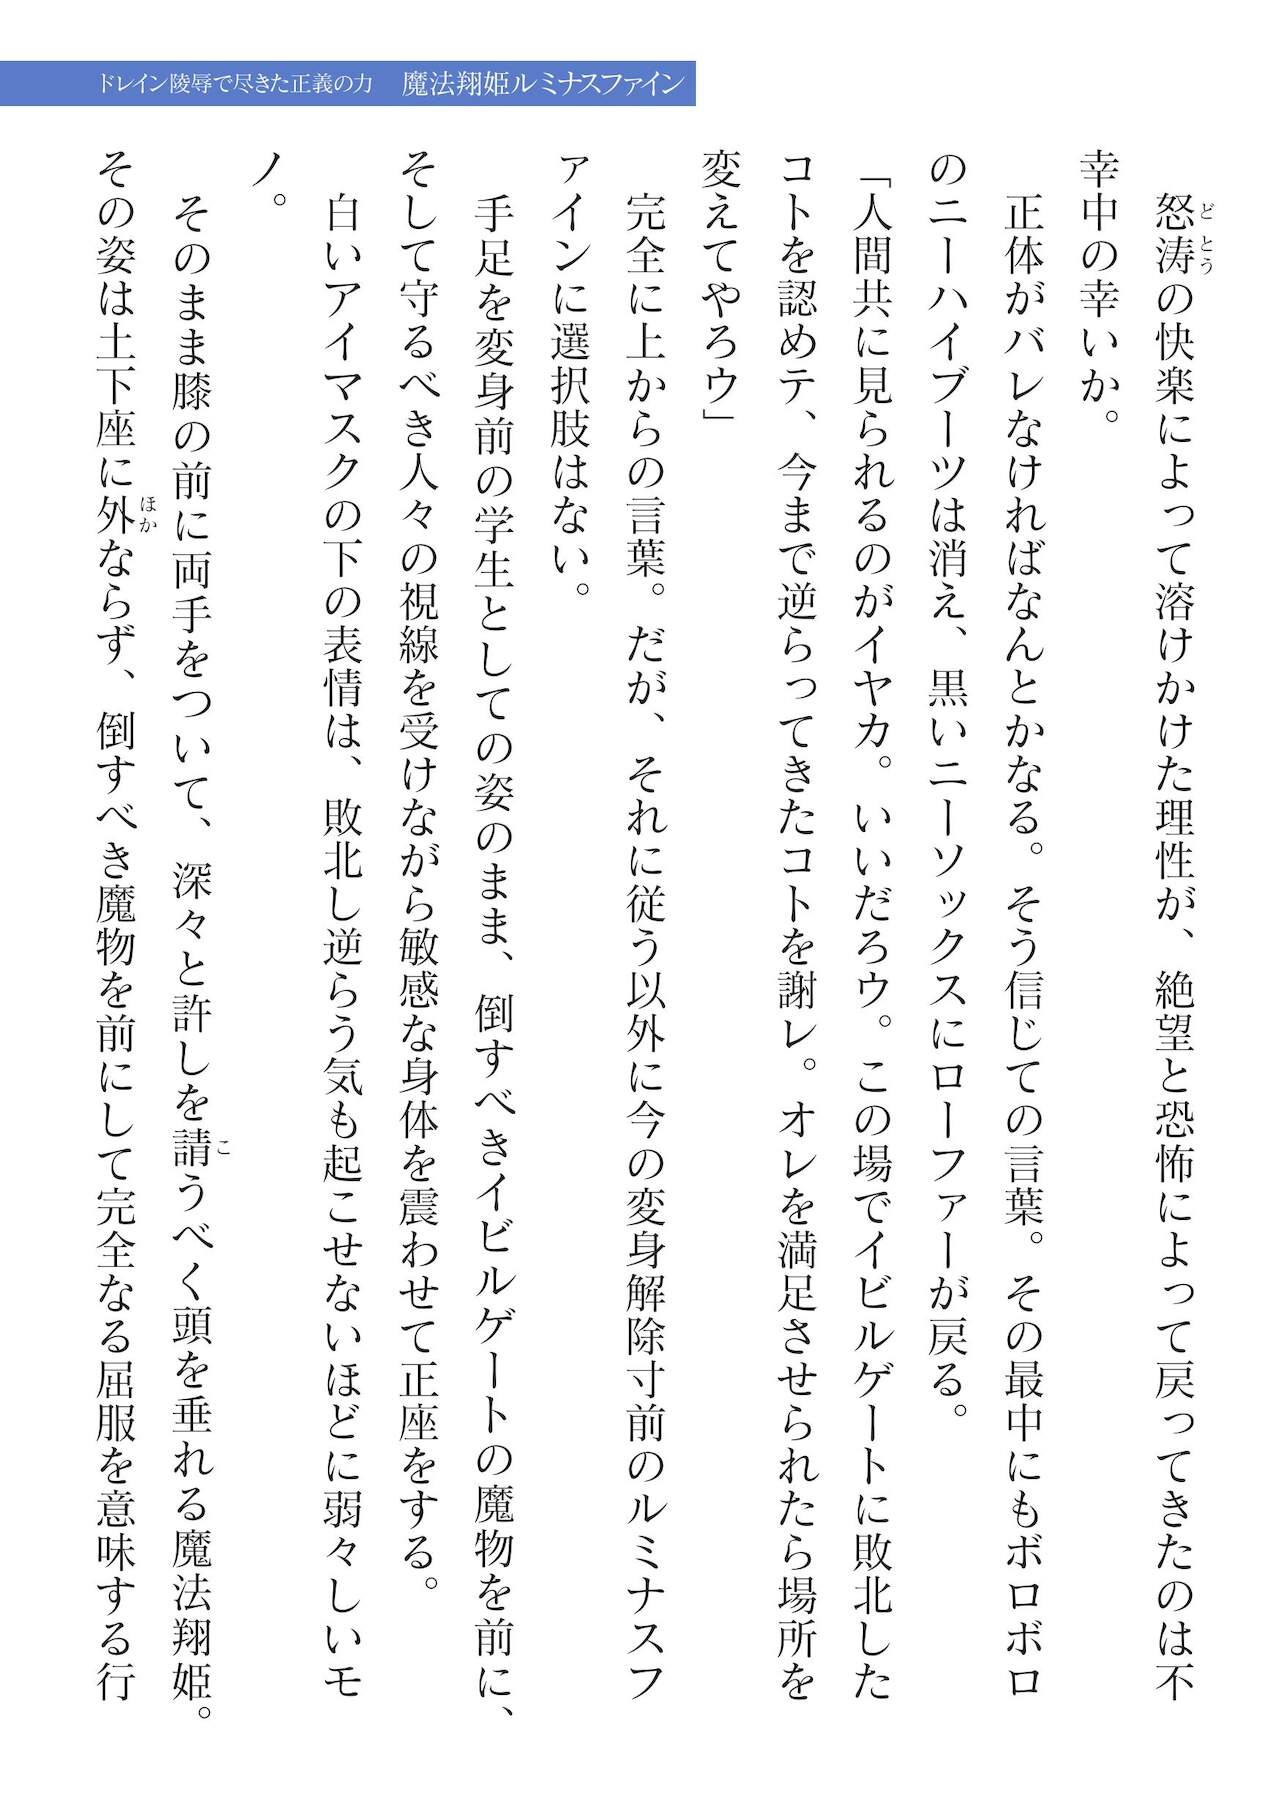 ドレイン陵辱で尽きた正義の力　魔法翔姫ルミナスファイン
怒涛の快楽によって溶けかけた理性が、絶望と恐怖によって戻ってきたのは不
幸中の幸いか。
正体がバレなければなんとかなる。そう信じての言葉。その最中にもボロボロ
のニーハイブーツは消え、黒いニーソックスにローファーが戻る。
「人間共に見られるのがイヤカ。いいだろウ。この場でイビルゲートに敗北した
コトを認めテ、今まで逆らってきたコトを謝レ。オレを満足させられたら場所を
変えてやろウ」
完全に上からの言葉。だが、それに従う以外に今の変身解除寸前のルミナスフ
ァインに選択肢はない。
手足を変身前の学生としての姿のまま、倒すべきイビルゲートの魔物を前に、
そして守るべき人々の視線を受けながら敏感な身体を震わせて正座をする。
白いアイマスクの下の表情は、敗北し逆らう気も起こせないほどに弱々しいモ
ノ。
そのまま膝の前に両手をついて、深々と許しを請うべく頭を垂れる魔法翔姫。
その姿は土下座に外ならず、倒すべき魔物を前にして完全なる屈服を意味する行